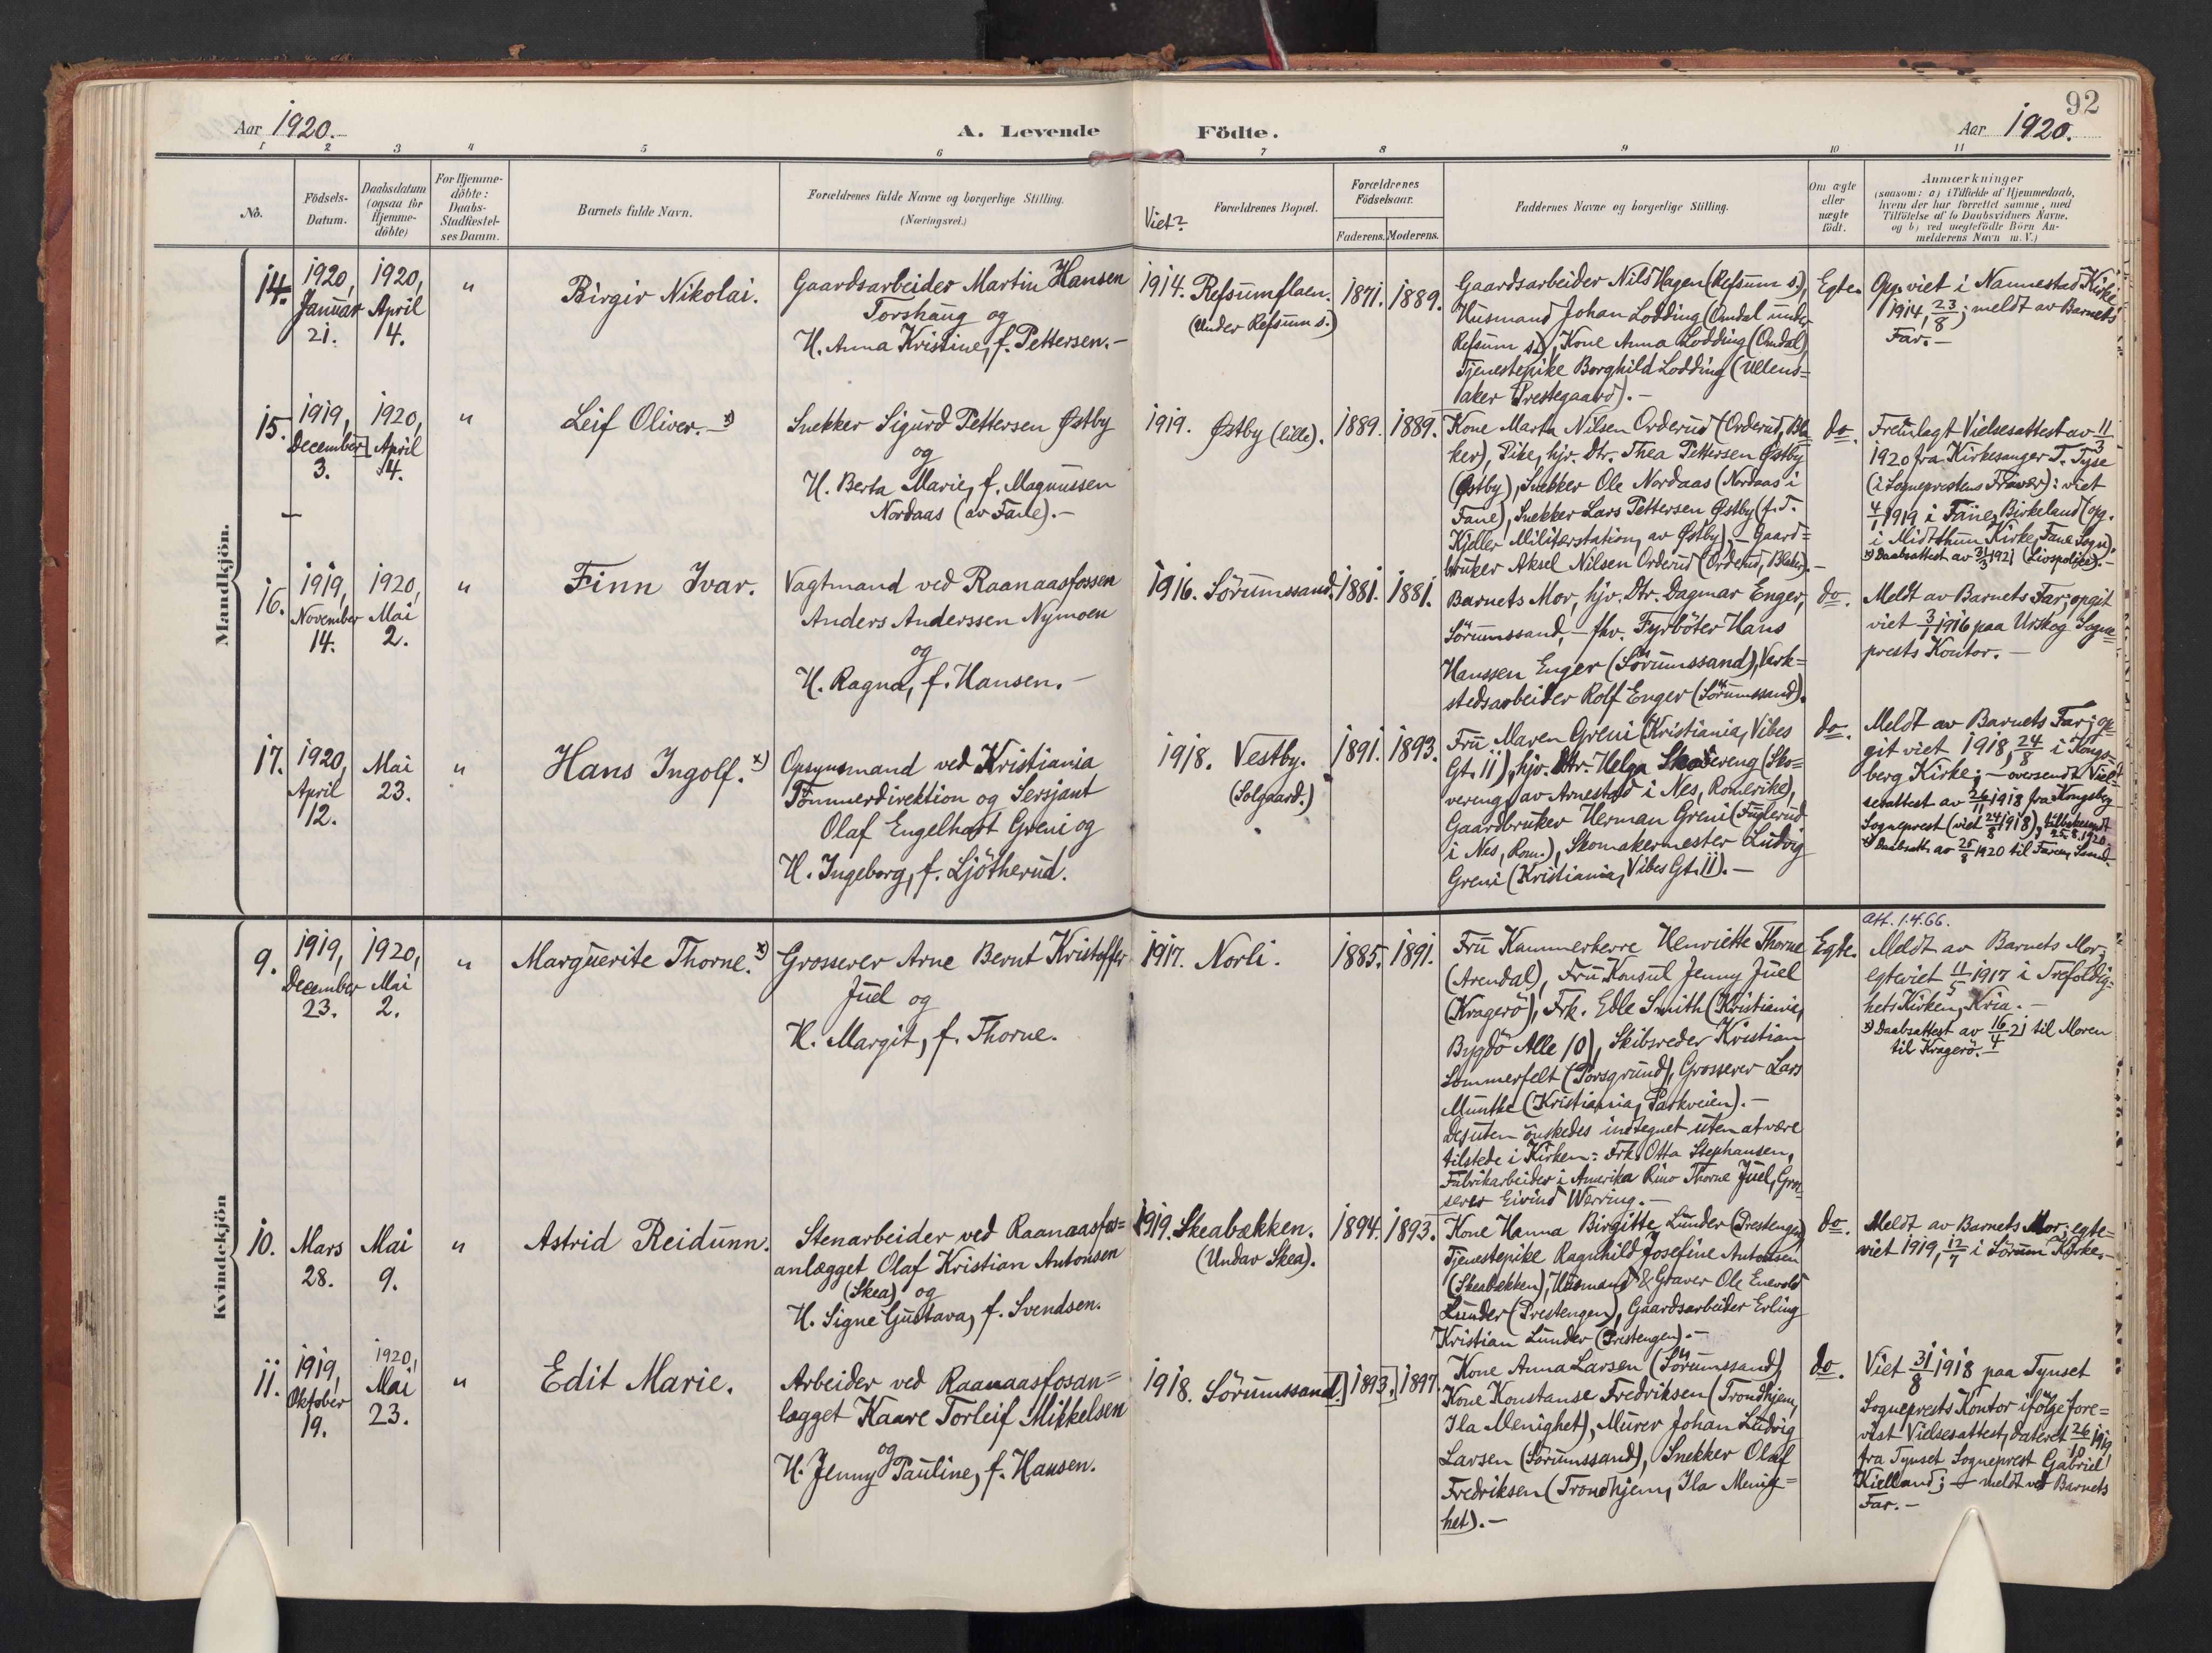 92
Aar 1920.
A. Levende Födte.
Aar 1920.
1 2 3 4 5 6 7 8 9 10 11
No.
Födsels-
Datum.
Daabsdatum
(ogsaa for
Hjemme-
döbte)
For Hjemme-
döbte:
Daabs-
Stadfæstel-
ses Datum.
Barnets fulde Navn.
Forældrenes fulde Navne og borgerlige Stilling.
(Næringsvei.)
Viet?
Forældrenes Bopæl.
Forældrenes
Födselsaar.
Faderens. Moderens.
Faddernes Navne og borgerlige Stilling.
Om ægte
eller
uægte
födt.
Anmærkninger
(saasom: a) i Tilfælde af Hjemmedaab,
hvem der har forrettet samme, med
Tilföielse af to Daabsvidners Navne.
og b) ved uægtefödte Börn An-
melderens Navn m. V.)
Mandkjön.
14.
1920,
Januar
21.
1920,
April
4.
"
Birgir Nikolai.
Gaardsarbeider Martin Hansen
Torshaug og
H. Anna Kristine, f. Pettersen. -
1914.
Refsumflaen.
(under Refsum s.)
1871.
1889.
Gaardsarbeider Nils Hagen (Refsum s.),
Husmand Johan Lodding (Omdal under
Refsum s.), Kone Anna Lodding (Omdal),
Tjenestepike Borghild Lodding (Ullens=
aker Prestegaard). -
Egte.
Opg. viet i Nannestad Kirke
1914, 23/8; meldt av Barnets
Far. -
15.
1919,
December
3.
1920,
April
4.
"
Leif Oliver. - x)
Snekker Sigurd Pettersen Østby
og
H. Berta Marie, f. Magnussen
Nordaas (av Fane). -
1919.
Østby (lille).
1889.
1889.
Kone Marta Nilsen Orderud (Orderud, Bla=
ker), Pike, hjv. Dtr. Thea Pettersen Østby
(Østby), Snekker Ole Nordaas (Nordaas i
Fane), Snekker Lars Pettersen Østby (f. T.
Kjeller Militærstation, av Østby), - Gaard=
bruker Aksel Nilsen Orderud (Orderud, Blaker). -
do.
Fremlagt Vielsesattest av 11/3
1920 fra Kirkesanger T. Tyse
(i Sogneprestens Fravær): viet
4/1 1919 i Fane, Birkeland (og.
i Midtthun Kirke, Fane Sogn).
x) Daabsattest av 3/3 1921 (Livspolise). -
16.
1919,
November
14.
1920,
Mai
2.
"
Finn Ivar.
Vagtmand ved Raanaasfossen
Anders Anderssen Nymoen
og
H. Ragna, f. Hansen. -
1916.
Sörumssand.
1881.
1881.
Barnets Mor, hjv. Dtr. Dagmar Enger,
Sörumssand, - fhv. Fyrböter Hans
Hanssen Enger (Sörumssand), Verk=
stedsarbeider Rolf Enger (Sörumssand).
do.
Meldt av Barnets Far; opgit
viet 3/1 1916 paa Urskog Sogne=
prests Kontor. -
17.
1920,
April
12.
Mai
23.
"
Hans Ingolf. x)
Opsynsmand ved Kristiania
Tömmerdirektion og Sersjant
Olaf Engelhart Greni og
H. Ingeborg, f. Ljötherud.
1918.
Vestby.
(Solgaard.)
1891.
1893.
Fru Maren Greni (Kristiania, Vibes
Gt. 11), hjv. Dtr. Helga Skovereng (Sko=
vereng, av Arnestad i Nes, Romerike),
Gaardbruker Herman Greni (Fuglerud
i Nes, Rom.), Skomakermester Ludvig
Greni (Kristiania, Vibes Gt. 11). -
do.
Meldt av Barnets Far; op=
git viet 1918, 24/8 i Kongs=
berg Kirke; - oversendt Viel=
sesattest av 26/11 1918 fra Kongsberg
Sogneprest (viet 24/8 1918), tilbakesendt
25.8.1920.
x) Daabsatt. av 25/8 1920 til Faren, Sand.
Kvindekjön
9.
1919,
December
23.
1920,
Mai
2.
"
Marguerite Thorne. x)
Grosserer Arne Bernt Kristoffer
Juel og
H. Margit, f. Thorne.
1917.
Norli.
1885.
1891.
Fru Kammerherre Henriette Thorne
(Arendal), Fru Konsul Jenny Juel
(Kragerö), Frk. Edle Smith (Kristiania,
Bygdö Alle 10), Skibsreder Kristian
Sommerfelt (Porsgrund), Grosserer Lars
Munthe (Kristiania, Parkveien). -
Desuten önskedes indtegnet uten at være
tilstede i Kirken: Frk. Otta Stephansen,
Fabrikarbeider i Amerika Rino Thorne Juel, Gros-
serer Eivind Werring. -
Egte.
att. 1.4.66.
Meldt av Barnets Mor;
egteviet 11/5 1917 i Trefoldig-
hets Kirken, Kria. -
x) Daabsattest av 16/4 21 til Moren
til Kragerö. -
10.
Mars
28.
Mai
9.
"
Astrid Reidunn.
Stenarbeider ved Raanaasfos=
anlægget Olaf Kristian Antonsen
(Skea) og
H. Signe Gustava, f. Svendsen.
1919.
Skeabækken.
(Under Skea).
1894.
1893.
Kone Hanna Birgitte Lunder (Prestengen)
Tjenestepike Ragnhild Josefine Antonsen
(Skeabækken), Husmand & Graver Ole Enevold
Lunder (Prestengen), Gaardsarbeider Erling
Kristian Lunder (Prestengen). -
do.
Meldt av Barnets Mor; egte=
viet 1919, 12/7 i Sörum Kirke. -
11.
1919,
Oktober
19.
1920,
Mai
23.
"
Edit Marie.
Arbeider ved Raanaasfosan=
lægget Kaare Torleif Mikkelsen
og
H. Jenny Pauline, f. Hansen.
1918.
Sörumssand.
1893.
1897.
Kone Anna Larsen (Sörumssand),
Kone Konstanse Fredriksen (Trondhjem,
Ila Menighet), Murer Johan Ludvig
Larsen (Sörumssand), Snekker Olaf
Fredriksen (Trondhjem, Ila Menig=
het). -
do.
Viet 31/8 1918 paa Tynset
Sogneprests Kontor ifölge fore=
vist Vielsesattest, dateret 26/10 1919
fra Tynset Sogneprest Gabriel
Kielland; - meldt ved Barnets
Far. -